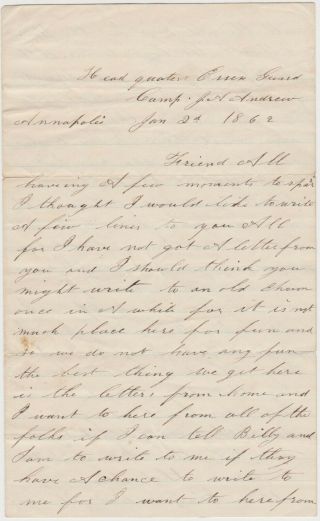 Head quaters Essex Guard
Camp J A Andrew
Annapolis Jan 2d 1862
Friend All
haveing A few moments to spar
I thought I would like to write
A few lines to you All
for I have not got A letter from
you and I should think you
might write to an old chum
once in A while for it is not
much place here for fun and
so we do not have any fun
the best thing we get here
is the letters from home and
I want to here from all of the
folks if I can tell Billy and
Sam to write to me if they
have A chance to write to
me for I want to here from